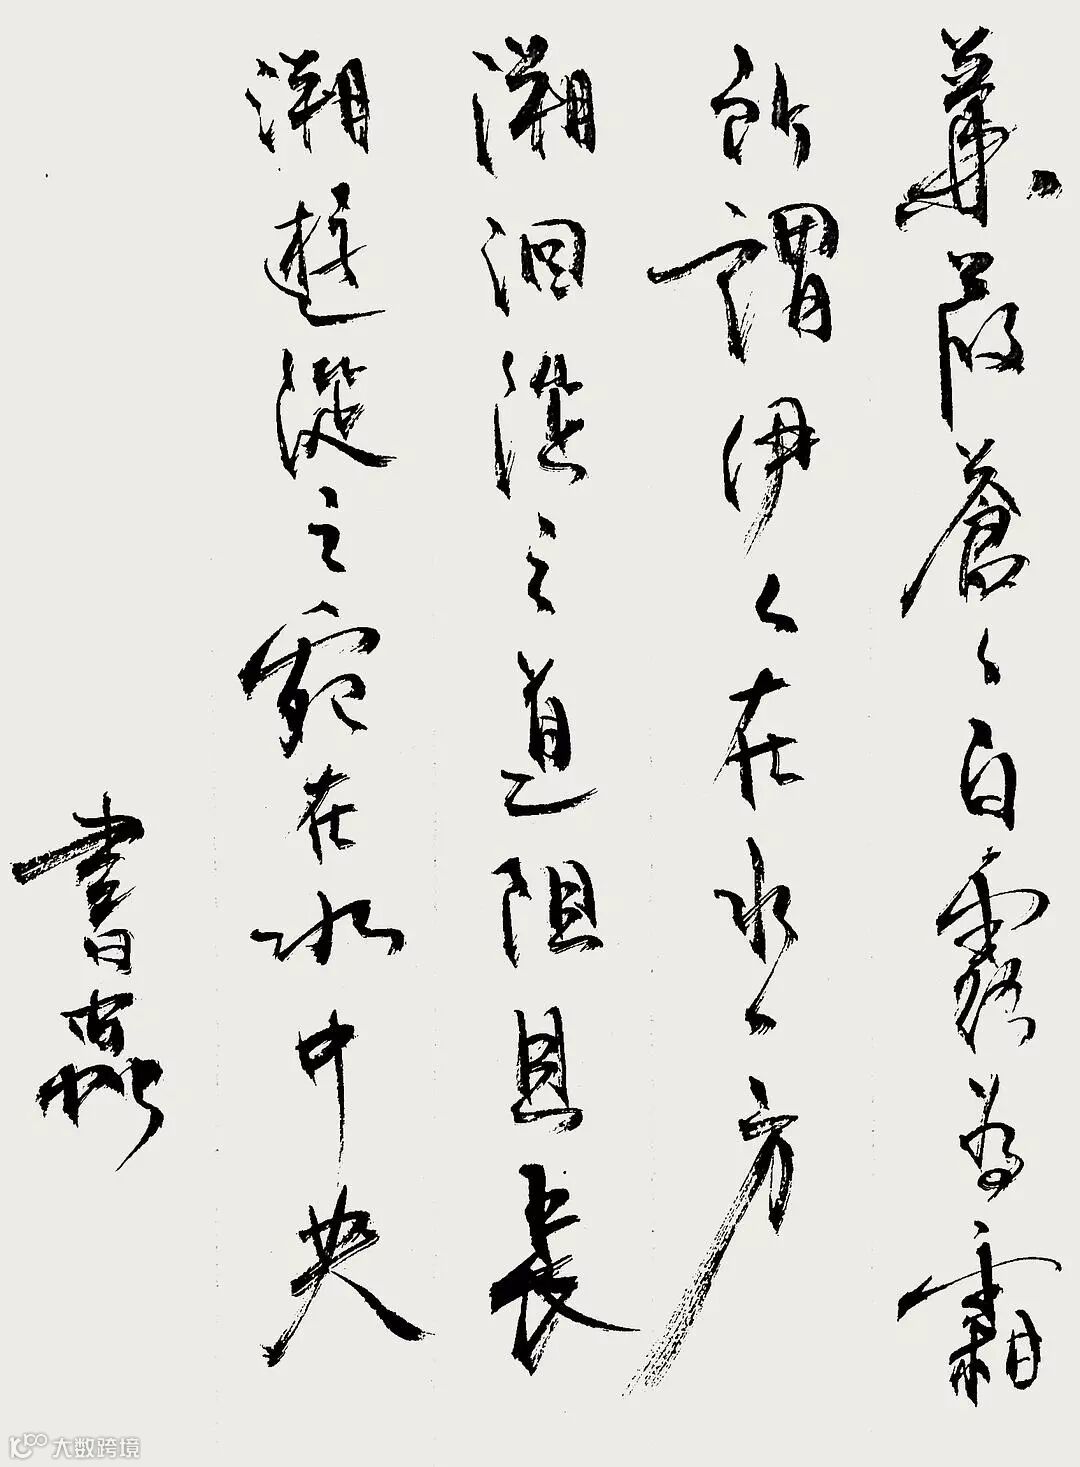 蒹葭蒼々白露為霜
所謂伊人在水一方
溯洄從之道阻且長
溯遊從之宛在水中央
書
大数跨境